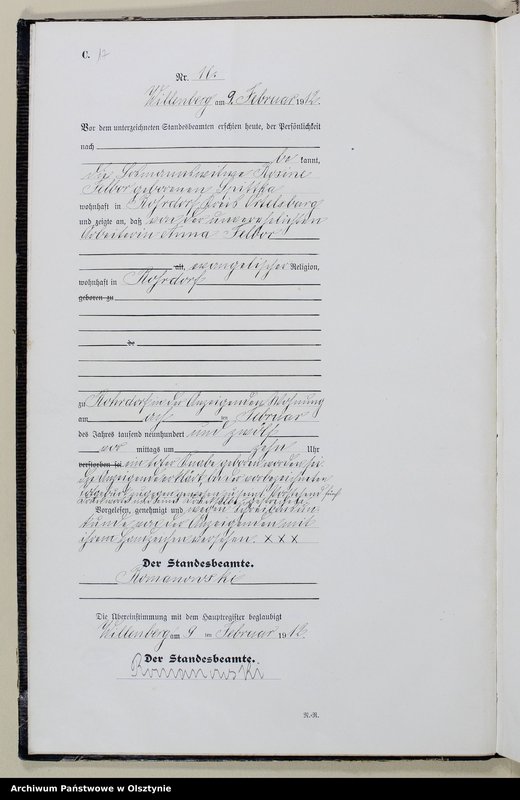 C. 17
Nr. 16.
Willenberg am 9. Februar 1912.
Vor dem unterzeichneten Standesbeamten erschien heute, der Persönlichkeit
nach
be kannt,
die Rosine
geborenen
wohnhaft in Rohrdorf Kreis Ortelsburg
und zeigte an, daß von der unverehelichten
Arbeiterin Anna
alt, evangelischer Religion,
wohnhaft in Rohrdorf
geboren zu
de
zu Rohrdorf in der Anzeigenden Wohnung
am ten Februar
des Jahres tausend neunhundert und zwölf
vor mittags um zehn Uhr
verstorben sei ein toter Knabe geboren worden sei.
Die Anzeigende erklärt, bei der vorbezeichneten
zugegen gewesen zu sein. fünf
Vorgelesen, genehmigt und wegen Schreibensun
kunde von der Anzeigenden mit
ihrem Handzeichen versehen. × × ×
Der Standesbeamte.
Romanowski
Die Übereinstimmung mit dem Hauptregister beglaubigt
Willenberg am 9 ten Februar 1912.
Der Standesbeamte.
Romanowski
R.-R.
Archiwum Państwowe w Olsztynie